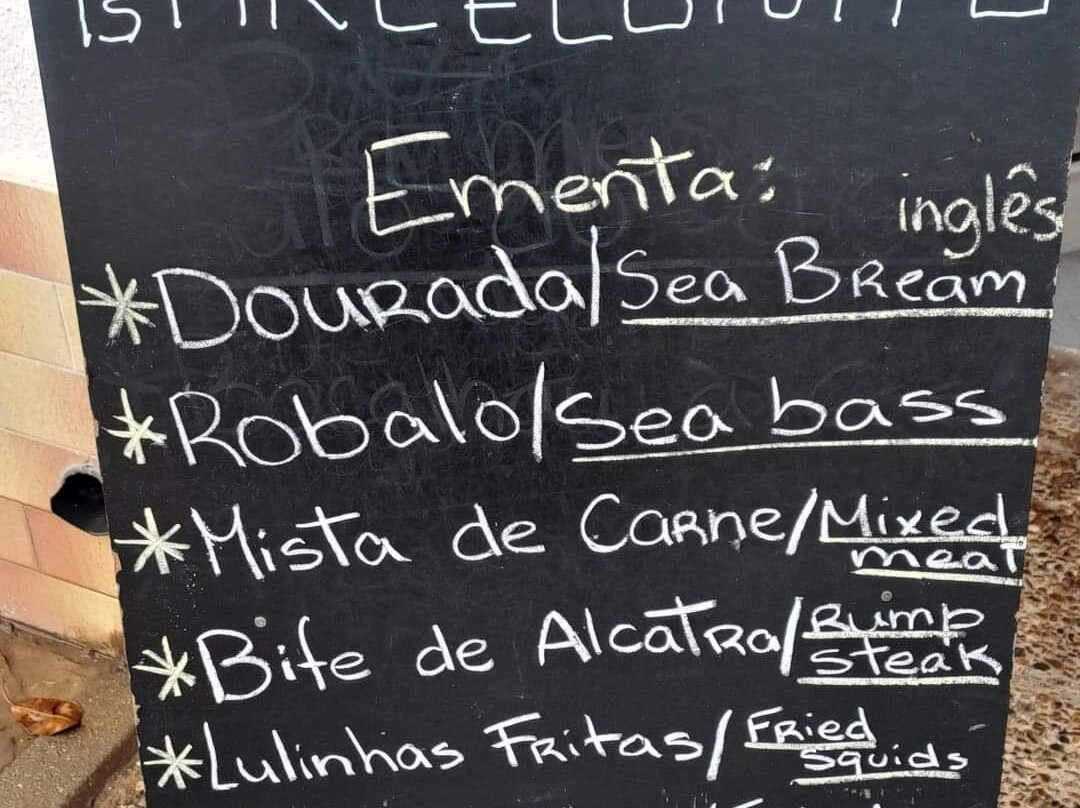 Ementa:
inglês
*Dourada/Sea Bream
*Robalo/Sea bass
*Mista de Carne/Mixed meat
*Bife de Alcatra/Rump steak
*Lulinhas Fritas/Fried Squids